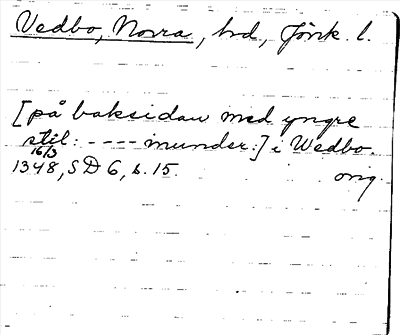 Vedbo, Norra, hd., Jönk. l.
[på baksidan med yngre
stil: ---- munder:] i Wedbo.
16/3
1348, SD 6, s. 15. orig.